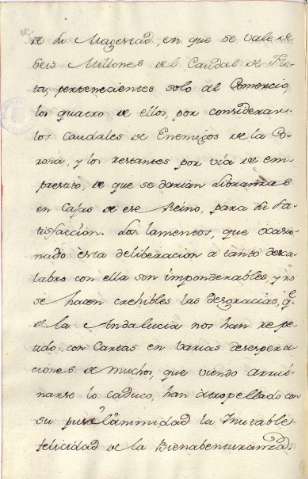 de Su Magestad, en que se vale de
seis Millones del Caudal de Flo-
ta, pertenecientes solo al Comercio,
los quatro de ellos, por considerar-
los Caudales de Enemigos de la Co-
rona, y los restantes por via de em-
prestito, de que se darian libranzas
en Caxas de ese Reino, para su sa-
tisfaccion. Los lamentos, que ocasio-
nado esta deliberacion a tanto desca-
labro con ella son imponderables, y no
se hacen crehibles las desgracias, q.e
de la Andalucia nos han repe-
tido, con Cartas en varias desespera-
ciones de muchos, que viendo arrui-
narse lo caduco, han atropellado con
su la inmutable
felicidad de la Bienabenturanza.